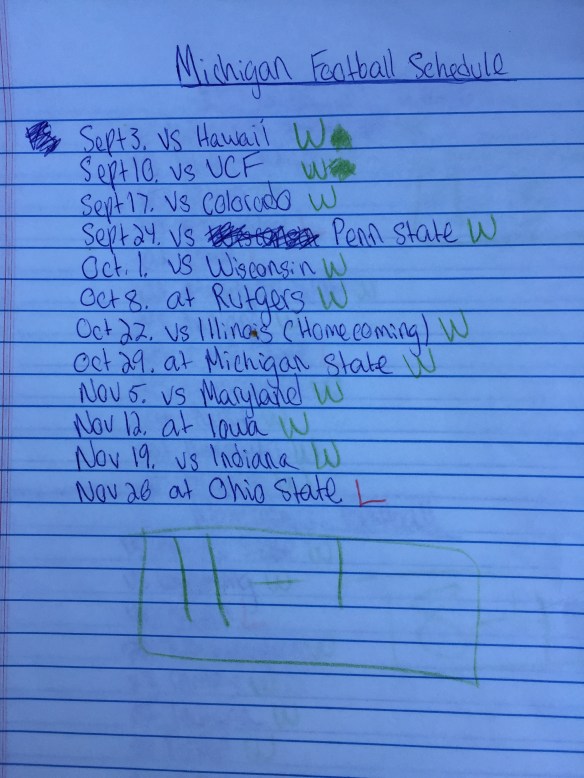 Michigan Football Schedule
Sept 3. vs Hawaii W
Sept 10. vs UCF W
Sept 17. vs Colorado W
Sept 24. vs Penn State W
Oct. 1. vs Wisconsin W
Oct 8. at Rutgers W
Oct 22. vs Illinois (Homecoming) W
Oct 29. at Michigan State W
Nov 5. vs Maryland W
Nov 12. at Iowa W
Nov 19. vs Indiana W
Nov 26 at Ohio State L
11 - 1